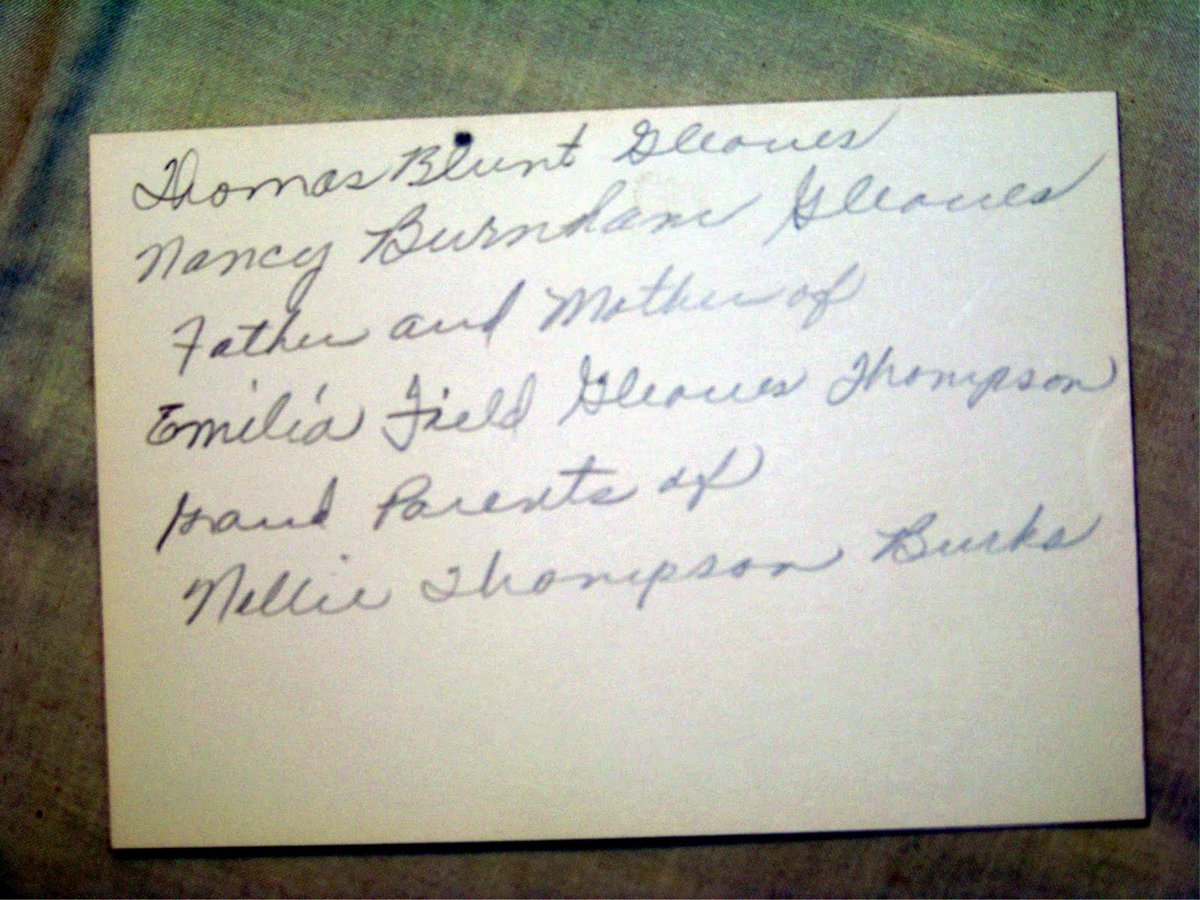 Thomas Blunt Gleaves
Nancy Burnham Gleaves
Father and Mother of
Emilia Field Gleaves Thompson
Grand Parents of
Nellie Thompson Burks